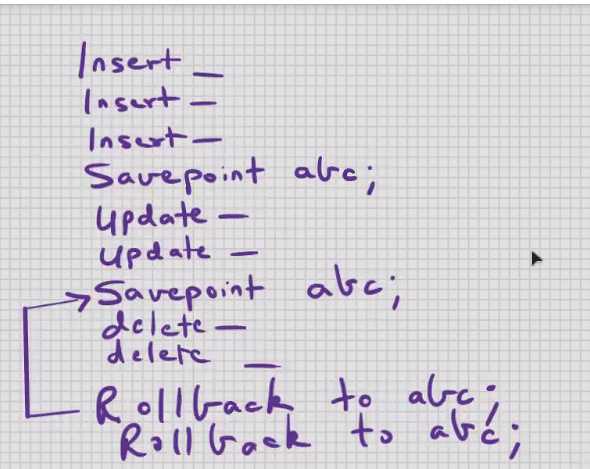 Insert _
Insert -
Insert -
Savepoint abc;
Update -
Update -
Savepoint abc;
delete -
delete _
Rollback to abc;
Rollback to abc;